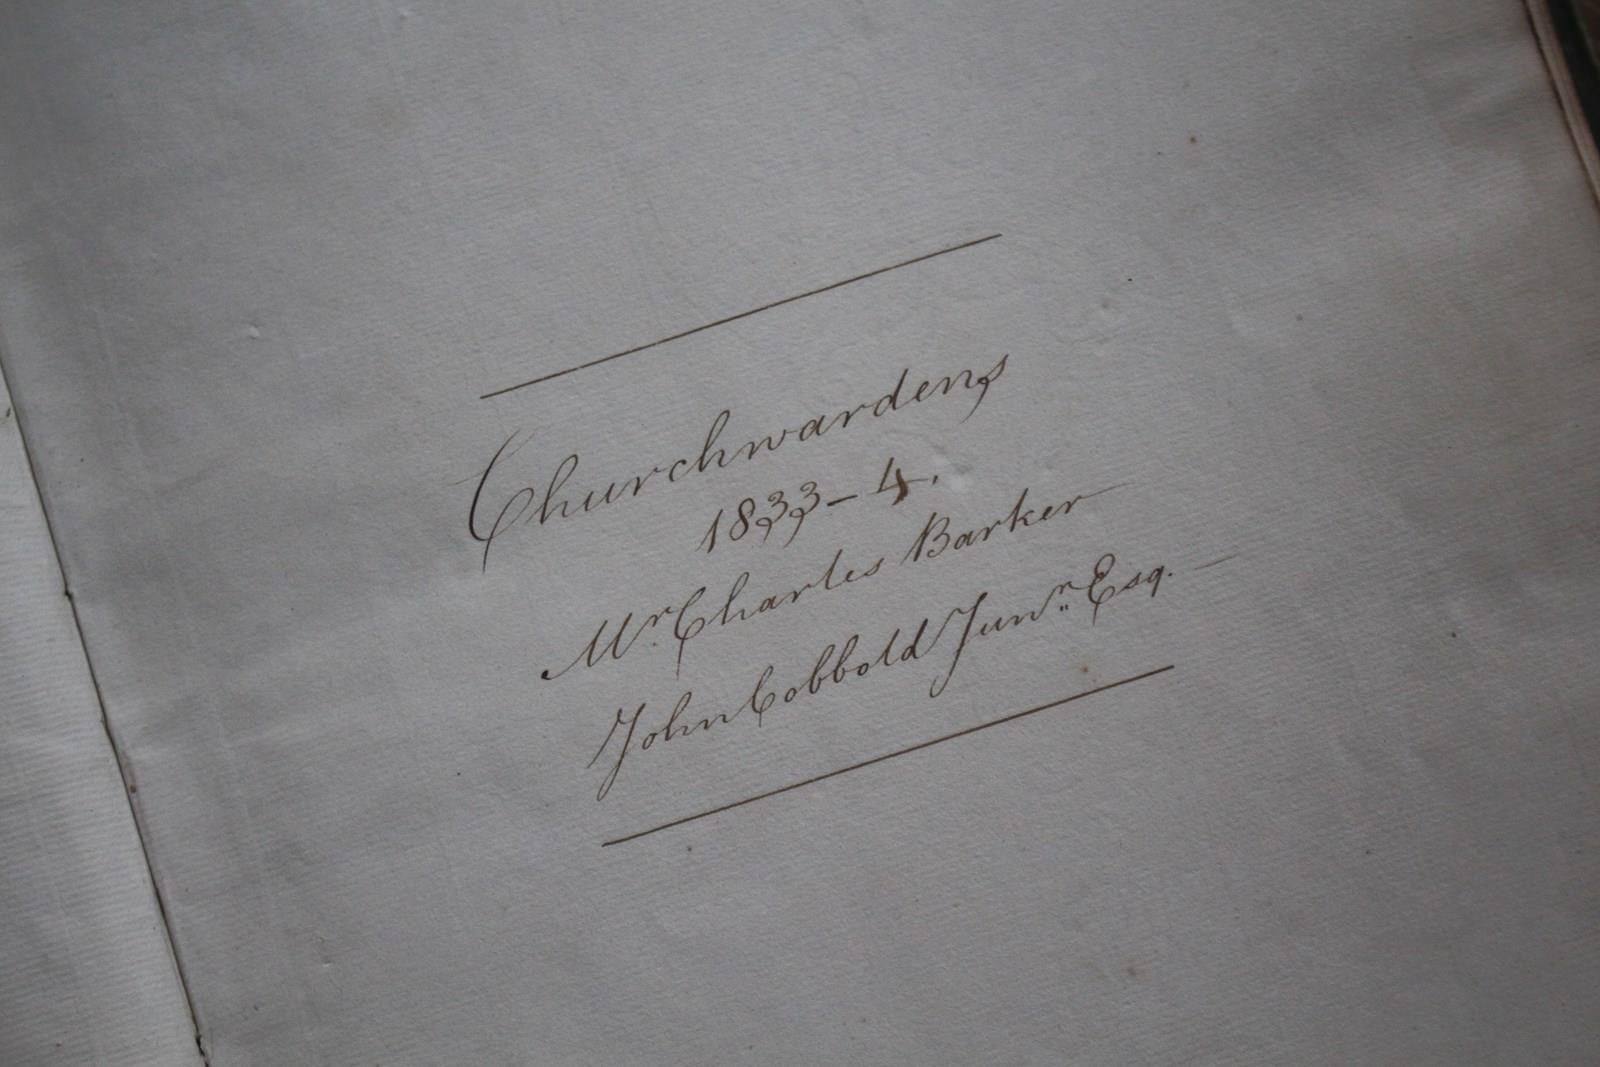 Churchwardens
1833-4.
Mr. Charles Barker
John Cobbold Junr. Esq.